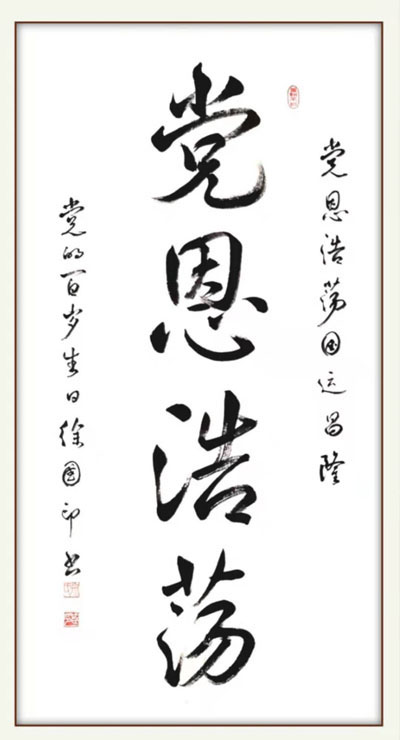 党恩浩荡国运昌隆
党恩浩荡
党的百岁生日徐国印书